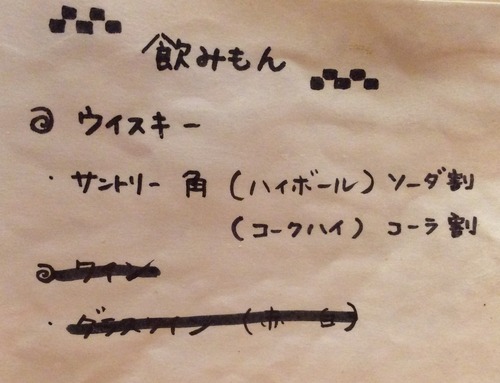 飲みもん
◎ ウイスキー
・ サントリー 角 (ハイボール) ソーダ割
(コークハイ) コーラ割
◎ ワイン
・ グラスワイン (赤 白)